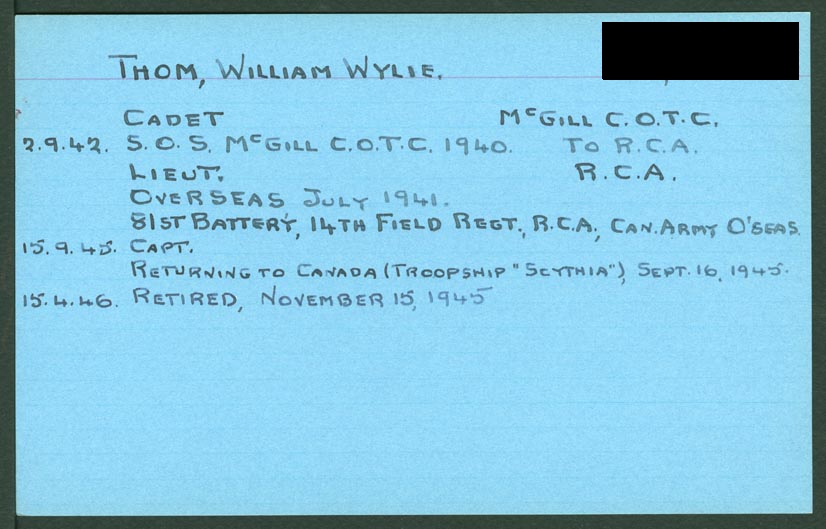 THOM, WILLIAM WYLIE.
CADET McGILL C.O.T.C.
2.9.42. S.O.S. McGILL C.O.T.C. 1940. TO R.C.A.
LIEUT. R.C.A.
OVERSEAS JULY 1941.
81ST BATTERY, 14TH FIELD REGT., R.C.A., CAN. ARMY O'SEAS.
15.9.45. CAPT.
RETURNING TO CANADA (TROOPSHIP "SCYTHIA"), SEPT. 16, 1945.
15.4.46. RETIRED, NOVEMBER 15, 1945